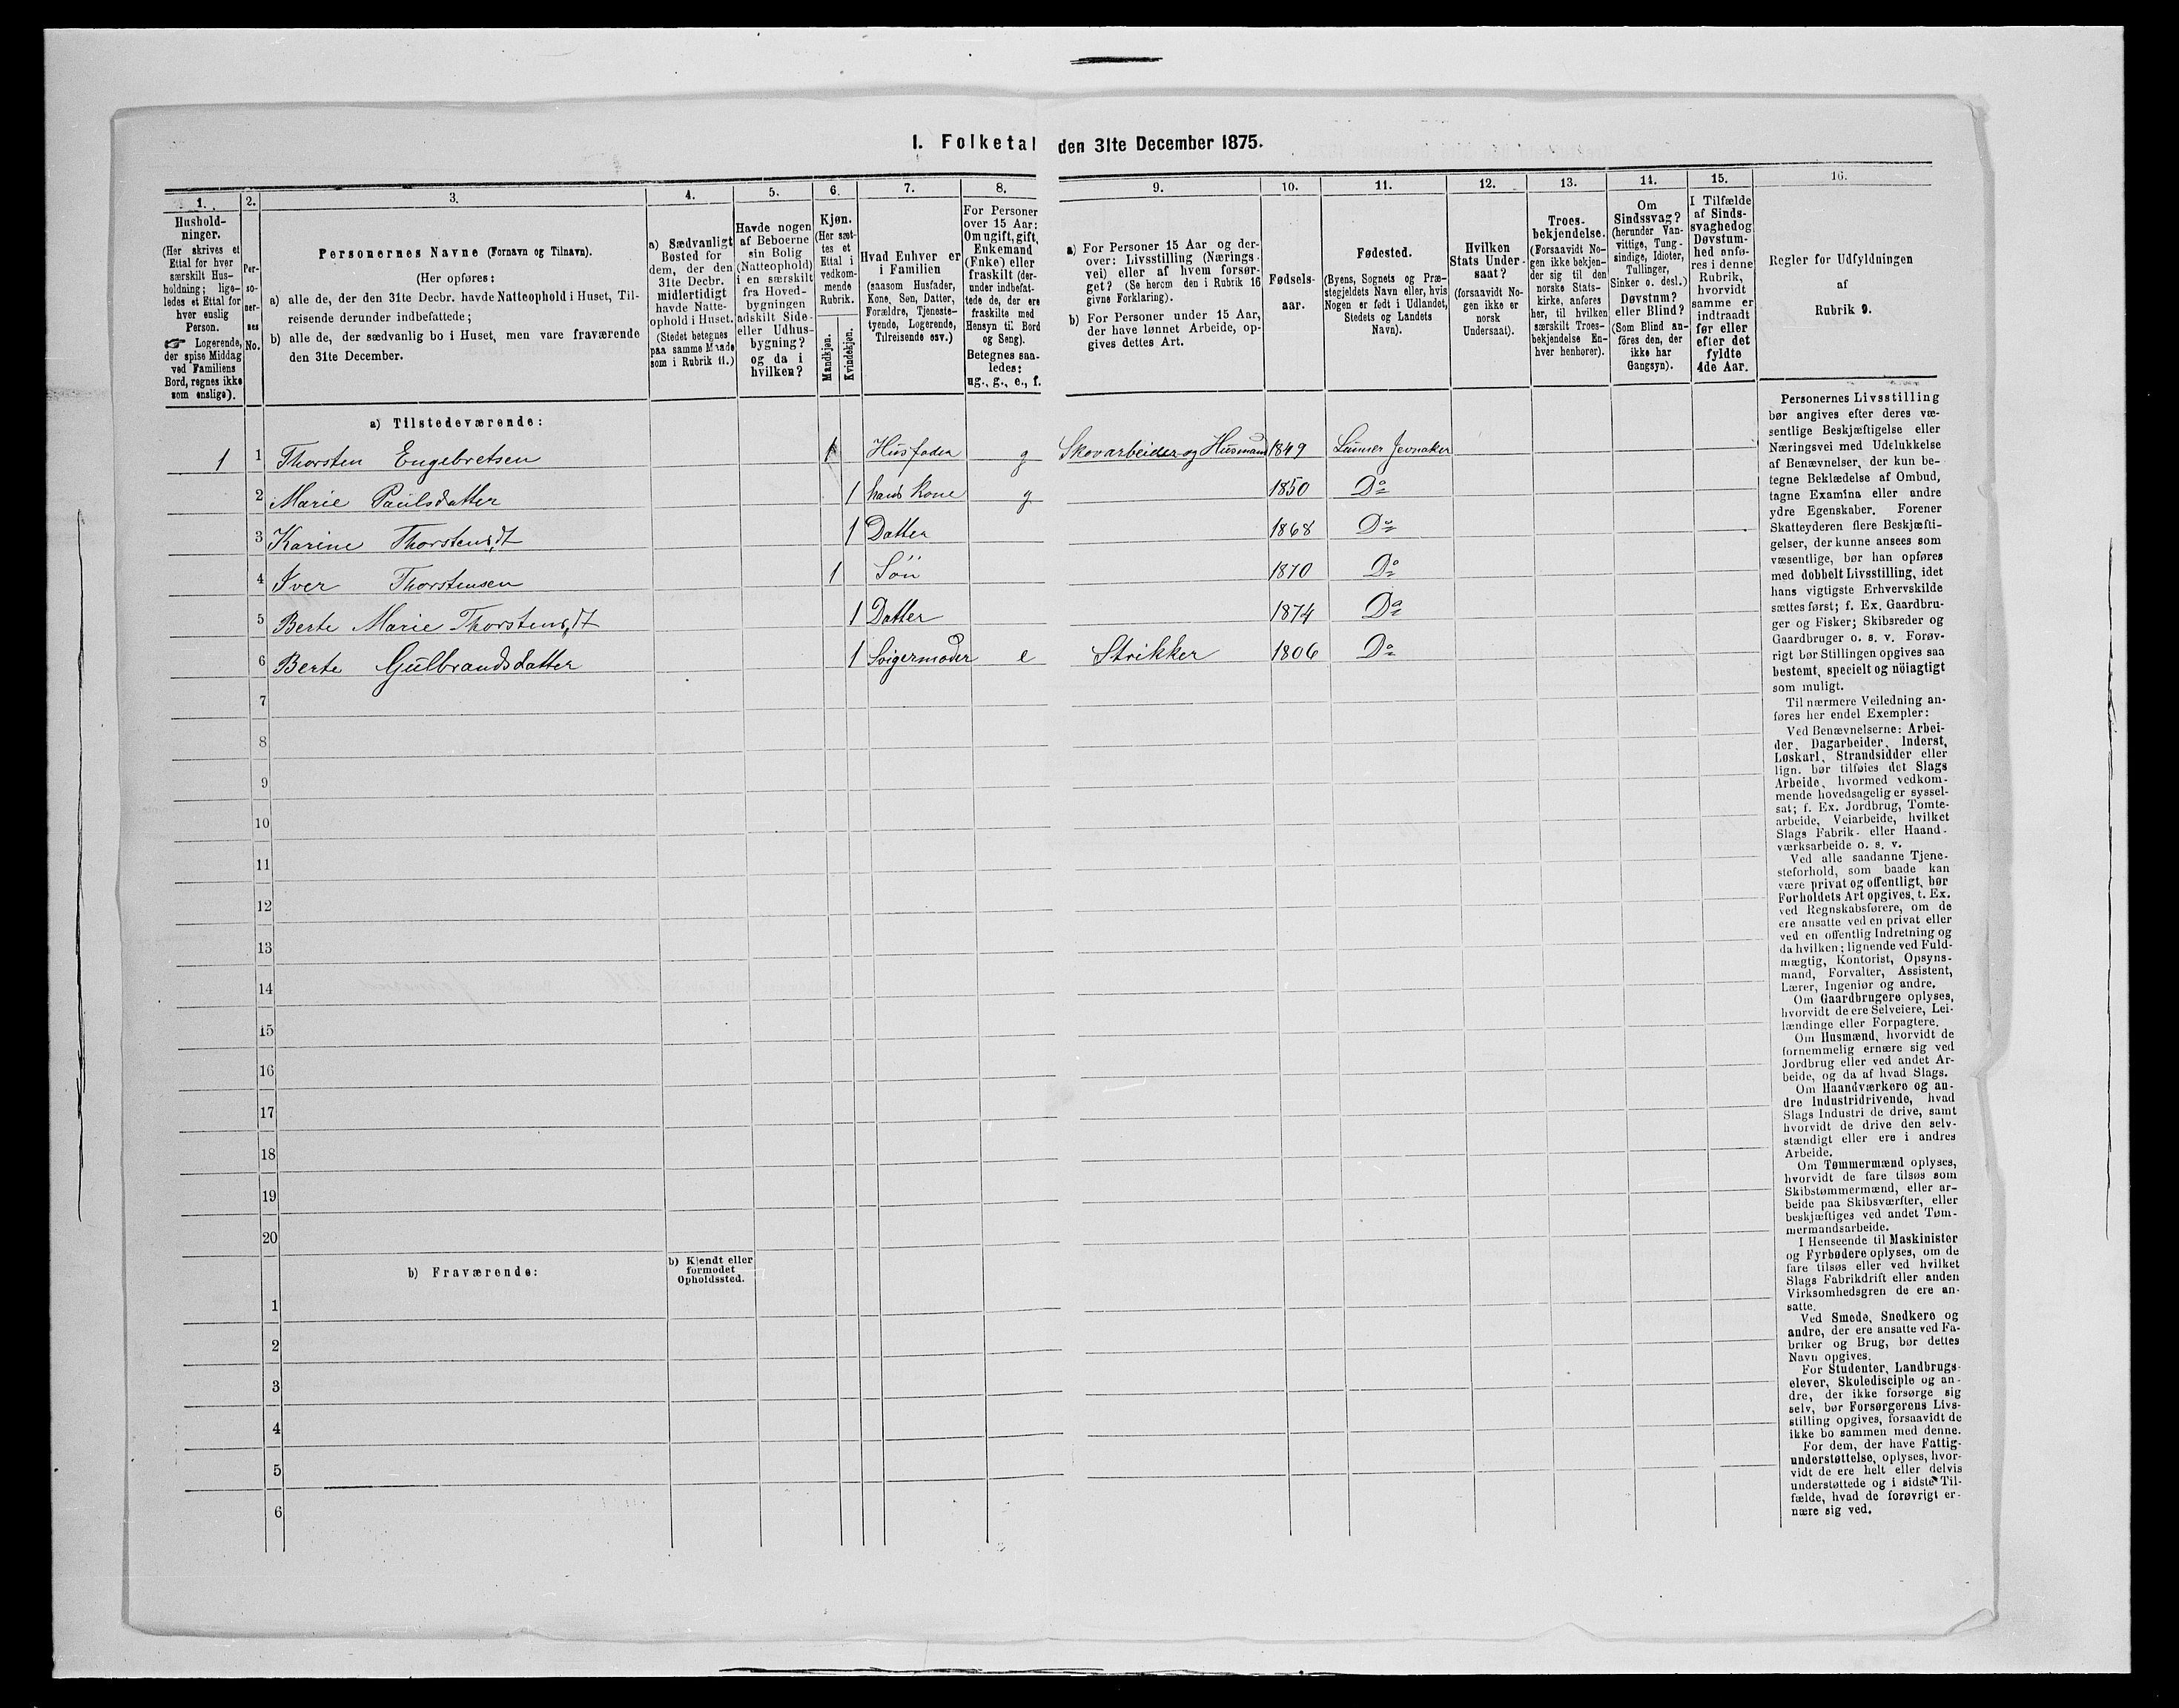 I. Folketal den 31te December 1875.
1. 2. 3. 4. 5. 6. 7. 8. 9. 10. 11. 12. 13. 14. 15. 16.
Hushold-
ninger.
(Her skrives et
Ettal for hver
særskilt Hus-
holdning; lige-
ledes et Ettal for
hver enslig
Person.
☞ Logerende,
der spise Middag
ved Familiens
Bord, regnes ikke
som enslige).
Per-
so-
ner-
nes
No.
Personernes Navne (Fornavn og Tilnavn).
(Her opføres:
a) alle de, der den 31te Decbr. havde Natteophold i Huset, Til-
reisende derunder indbefattede;
b) alle de, der sædvanlig bo i Huset, men vare fraværende
den 31te December.
a) Sædvanligt
Bosted for
dem, der den
31te Decbr.
midlertidigt
havde Natte-
ophold i Huset.
(Stedet betegnes
paa samme Maade
som i Rubrik 11.)
Havde nogen
af Beboerne
sin Bolig
(Natteophold)
i en særskilt
fra Hoved-
bygningen
adskilt Side-
eller Udhus-
bygning?
og da i
hvilken?
Kjøn.
(Her sæt-
tes et
Ettal i
vedkom-
mende
Rubrik.
Mandkjøn.
Kvindekjøn.
Hvad Enhver er
i Familien
(saasom Husfader,
Kone, Søn, Datter,
Forældre, Tjeneste-
tyende, Logerende,
Tilreisende osv.)
For Personer
over 15 Aar:
Om ugift, gift,
Enkemand
(Enke) eller
fraskilt (der-
under indbefat-
tede de, der ere
fraskilte med
Hensyn til Bord
og Seng).
Betegnes saa-
ledes:
ug., g., e., f.
a) For Personer 15 Aar og der-
over: Livsstilling (Nærings-
vei) eller af hvem forsør-
get? (Se herom den i Rubrik 16
givne Forklaring).
b) For Personer under 15 Aar,
der have lønnet Arbeide, op-
gives dettes Art.
Fødsels-
aar.
Fødested.
(Byens, Sognets og Præ-
stegjeldets Navn eller, hvis
Nogen er født i Udlandet,
Stedets og Landets
Navn).
Hvilken
Stats Under-
saat?
(forsaavidt No-
gen ikke er
norsk
Undersaat).
Troes-
bekjendelse.
(Forsaavidt No-
gen ikke bekjen-
der sig til den
norske Stats-
kirke, anføres
her, til hvilken
særskilt Troes-
bekjendelse En-
hver henhører).
Om
Sindssvag?
(herunder Van-
vittige, Tung-
sindige, Idioter,
Tullinger,
Sinker o. desl.)
Døvstum?
eller Blind?
(Som Blind an-
føres den, der
ikke har
Gangsyn).
I Tilfælde
af Sinds-
svaghed og
Døvstum-
hed anfø-
res i denne
Rubrik,
hvorvidt
samme er
indtraadt
før eller
efter det
fyldte
4de Aar.
Regler for Udfyldningen
af
Rubrik 9.
a) Tilstedeværende:
1 1 Thorsten Engebretsen 1 Husfader g Skovarbeider og Husmand 1849 Lunner Jevnaker
2 Marie Paulsdatter 1 hans Kone g 1850 Do
3 Karine Thorstensdt 1 Datter 1868 Do
4 Iver Thorstensen 1 Søn 1870 Do
5 Berte Marie Thorstensdt 1 Datter 1874 Do
6 Berte Gulbrandsdatter 1 Svigermoder e Strikker 1806 Do
7
8
9
10
11
12
13
14
15
16
17
18
19
20
b) Fraværende:
b) Kjendt eller
formodet
Opholdssted.
1
2
3
4
5
6
Personernes Livsstilling
bør angives efter deres væ-
sentlige Beskjæftigelse eller
Næringsvei med Udelukkelse
af Benævnelser, der kun be-
tegne Beklædelse af Ombud,
tagne Examina eller andre
ydre Egenskaber. Forener
Skatteyderen flere Beskjæfti-
gelser, der kunne ansees som
væsentlige, bør han opføres
med dobbelt Livsstilling, idet
hans vigtigste Erhvervskilde
sættes først; f. Ex. Gaardbru-
ger og Fisker; Skibsreder og
Gaardbruger o. s. v. Forøv-
rigt bør Stillingen opgives saa
bestemt, specielt og nöiagtigt
som muligt.
Til nærmere Veiledning an-
føres her endel Exempler:
Ved Benævnelserne: Arbei-
der, Dagarbeider, Inderst,
Løskarl, Strandsidder eller
lign. bør tilføies det Slags
Arbeide, hvormed vedkom-
mende hovedsagelig er syssel-
sat; f. Ex. Jordbrug, Tomte-
arbeide, Veiarbeide, hvilket
Slags Fabrik- eller Haand-
værksarbeide o. s. v.
Ved alle saadanne Tjene-
steforhold, som baade kan
være privat og offentligt, bør
Forholdets Art opgives, t. Ex.
ved Regnskabsførere, om de
ere ansatte ved en privat eller
ved en offentlig Indretning og
da hvilken; lignende ved Fuld-
mægtig, Kontorist, Opsyns-
mand, Forvalter, Assistent,
Lærer, Ingeniør og andre.
Om Gaardbrugere oplyses,
hvorvidt de ere Selveiere, Lei-
lændinge eller Forpagtere.
Om Husmænd, hvorvidt de
fornemmelig ernære sig ved
Jordbrug eller ved andet Ar-
beide, og da af hvad Slags.
Om Haandværkere og an-
dre Industridrivende, hvad
Slags Industri de drive, samt
hvorvidt de drive den selv-
stændigt eller ere i andres
Arbeide.
Om Tømmermænd oplyses,
hvorvidt de fare tilsøs som
Skibstømmermænd, eller ar-
beide paa Skibsværfter, eller
beskjæftiges ved andet Tøm-
mermandsarbeide.
I Henseende til Maskinister
og Fyrbødere oplyses, om de
fare tilsøs eller ved hvilket
Slags Fabrikdrift eller anden
Virksomhedsgren de ere an-
satte.
Ved Smede, Snedkere og
andre, der ere ansatte ved Fa-
briker og Brug, bør dettes
Navn opgives.
For Studenter, Landbrugs-
elever, Skoledisciple og an-
dre, der ikke forsørge sig
selv, bør Forsørgerens Livs-
stilling opgives, forsaavidt de
ikke bo sammen med denne.
For dem, der have Fattig-
understøttelse, oplyses, hvor-
vidt de ere helt eller delvis
understøttede og i sidste Til-
fælde, hvad de forøvrigt er-
nære sig ved.